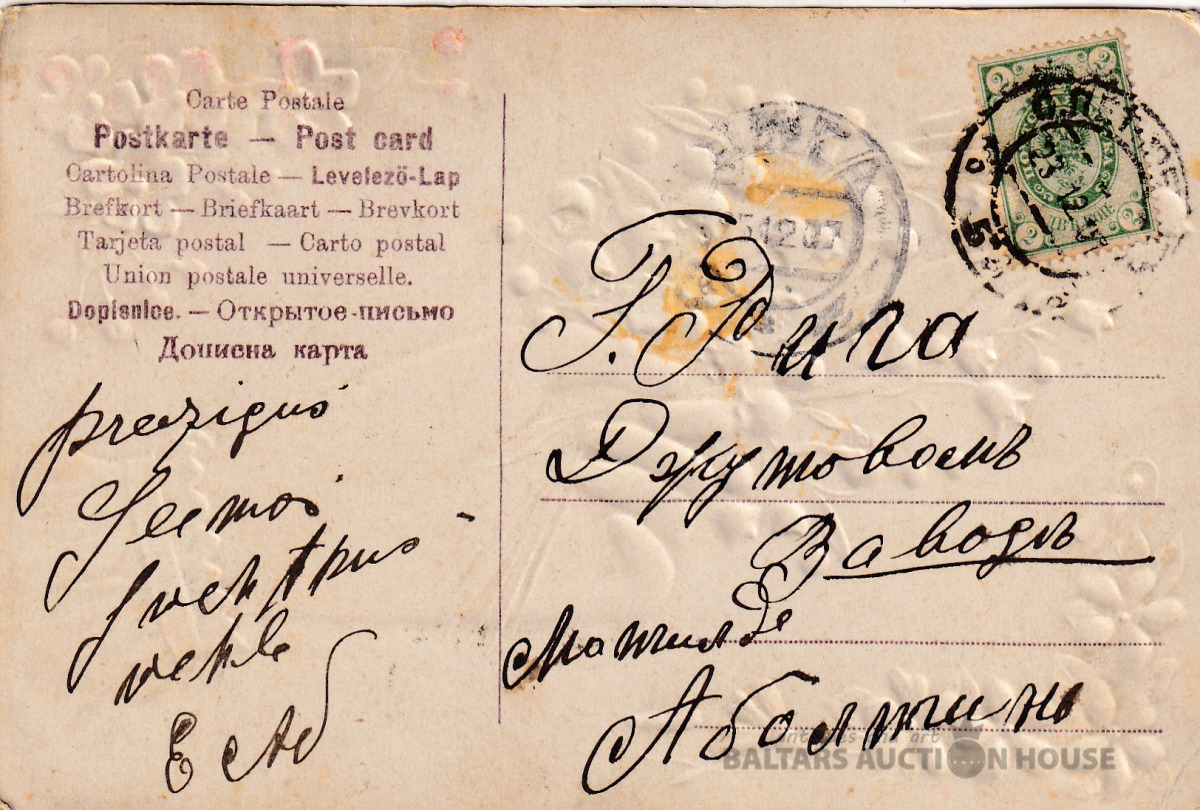 Carte Postale
Postkarte — Post card
Cartolina Postale — Levelezö-Lap
Brefkort — Briefkaart — Brevkort
Tarjeta postal — Carto postal
Union postale universelle.
Dopisnice. — Открытое-письмо
Дописна карта
preezigus
Seemas
svehtkus
vehle
E Ab
РИГА
5 12 07
2 2
2 2
Г. Рига
Джутовомъ
Заводѣ
Матилде
Аболтинь
BALTARS AUCTION HOUSE